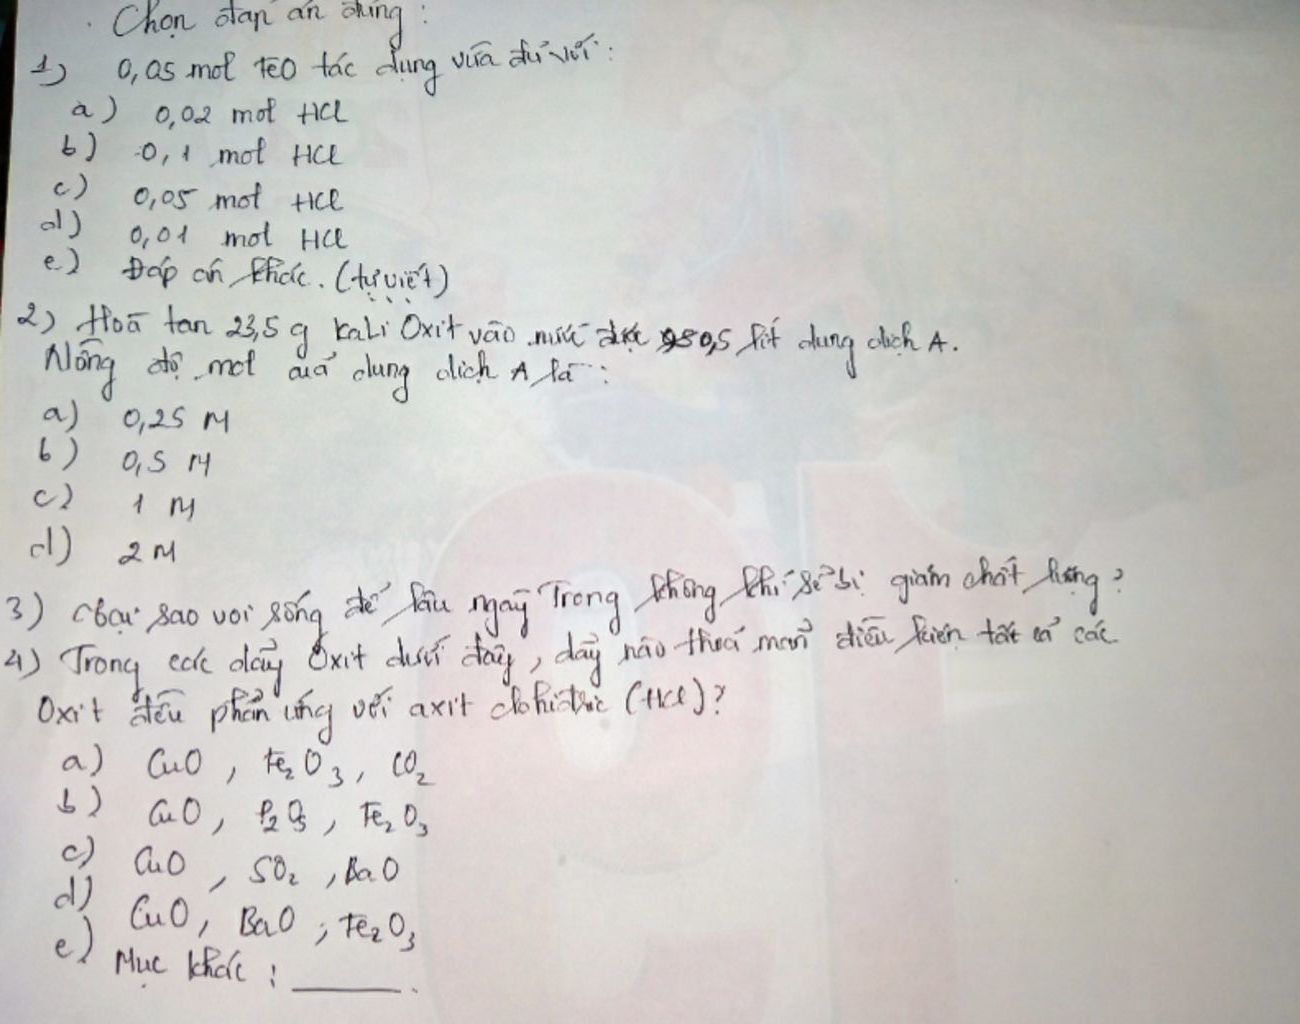 Chọn đáp án đúng:
1) 0,05 mol FeO tác dụng vừa đủ với:
a) 0,02 mol HCl
b) 0,1 mol HCl
c) 0,05 mol HCl
d) 0,01 mol HCl
e) Đáp án khác. (tự viết)
2) Hoà tan 23,5 g kali Oxit vào nước được 0,5 lít dung dịch A.
Nồng độ mol của dung dịch A là:
a) 0,25 M
b) 0,5 M
c) 1 M
d) 2 M
3) sao vôi sống để lâu ngày Trong không khí sẽ bị giảm chất lượng?
4) Trong các dãy Oxit dưới đây, dãy nào thoả mãn điều kiện tất cả các
Oxit đều phản ứng với axit clohiđric (HCl)?
a) CuO, Fe2O3, CO2
b) CuO, P2O5, Fe2O3
c) CuO, SO2, BaO
d) CuO, BaO; Fe2O3
e) Mục khác: ______.